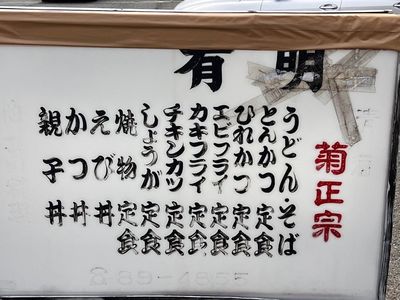 有明
菊正宗
うどん・そば
とんかつ定食
ひれかつ定食
エビフライ定食
カキフライ定食
チキンカツ定食
しょうが定食
焼物定食
えび丼
かつ丼
親子丼
☎89-4855